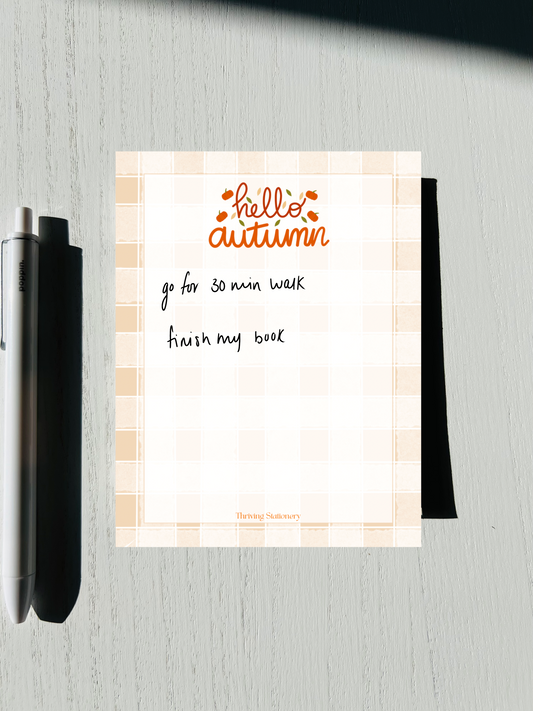 hello
autumn
go for 30 min walk
finish my book
Thriving Stationery
poppin.